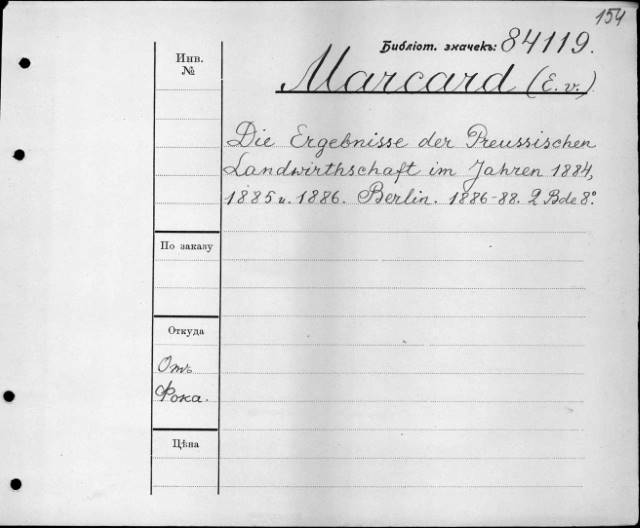 154
Библіот. значекъ: 84119.
Инв.
№
Marcard (E. v.)
Die Ergebnisse der Preussischen
Landwirthschaft im Jahren 1884,
1885 u. 1886. Berlin. 1886-88. 2 Bde 8°.
По заказу
Откуда
Отъ
Фока.
Цѣна